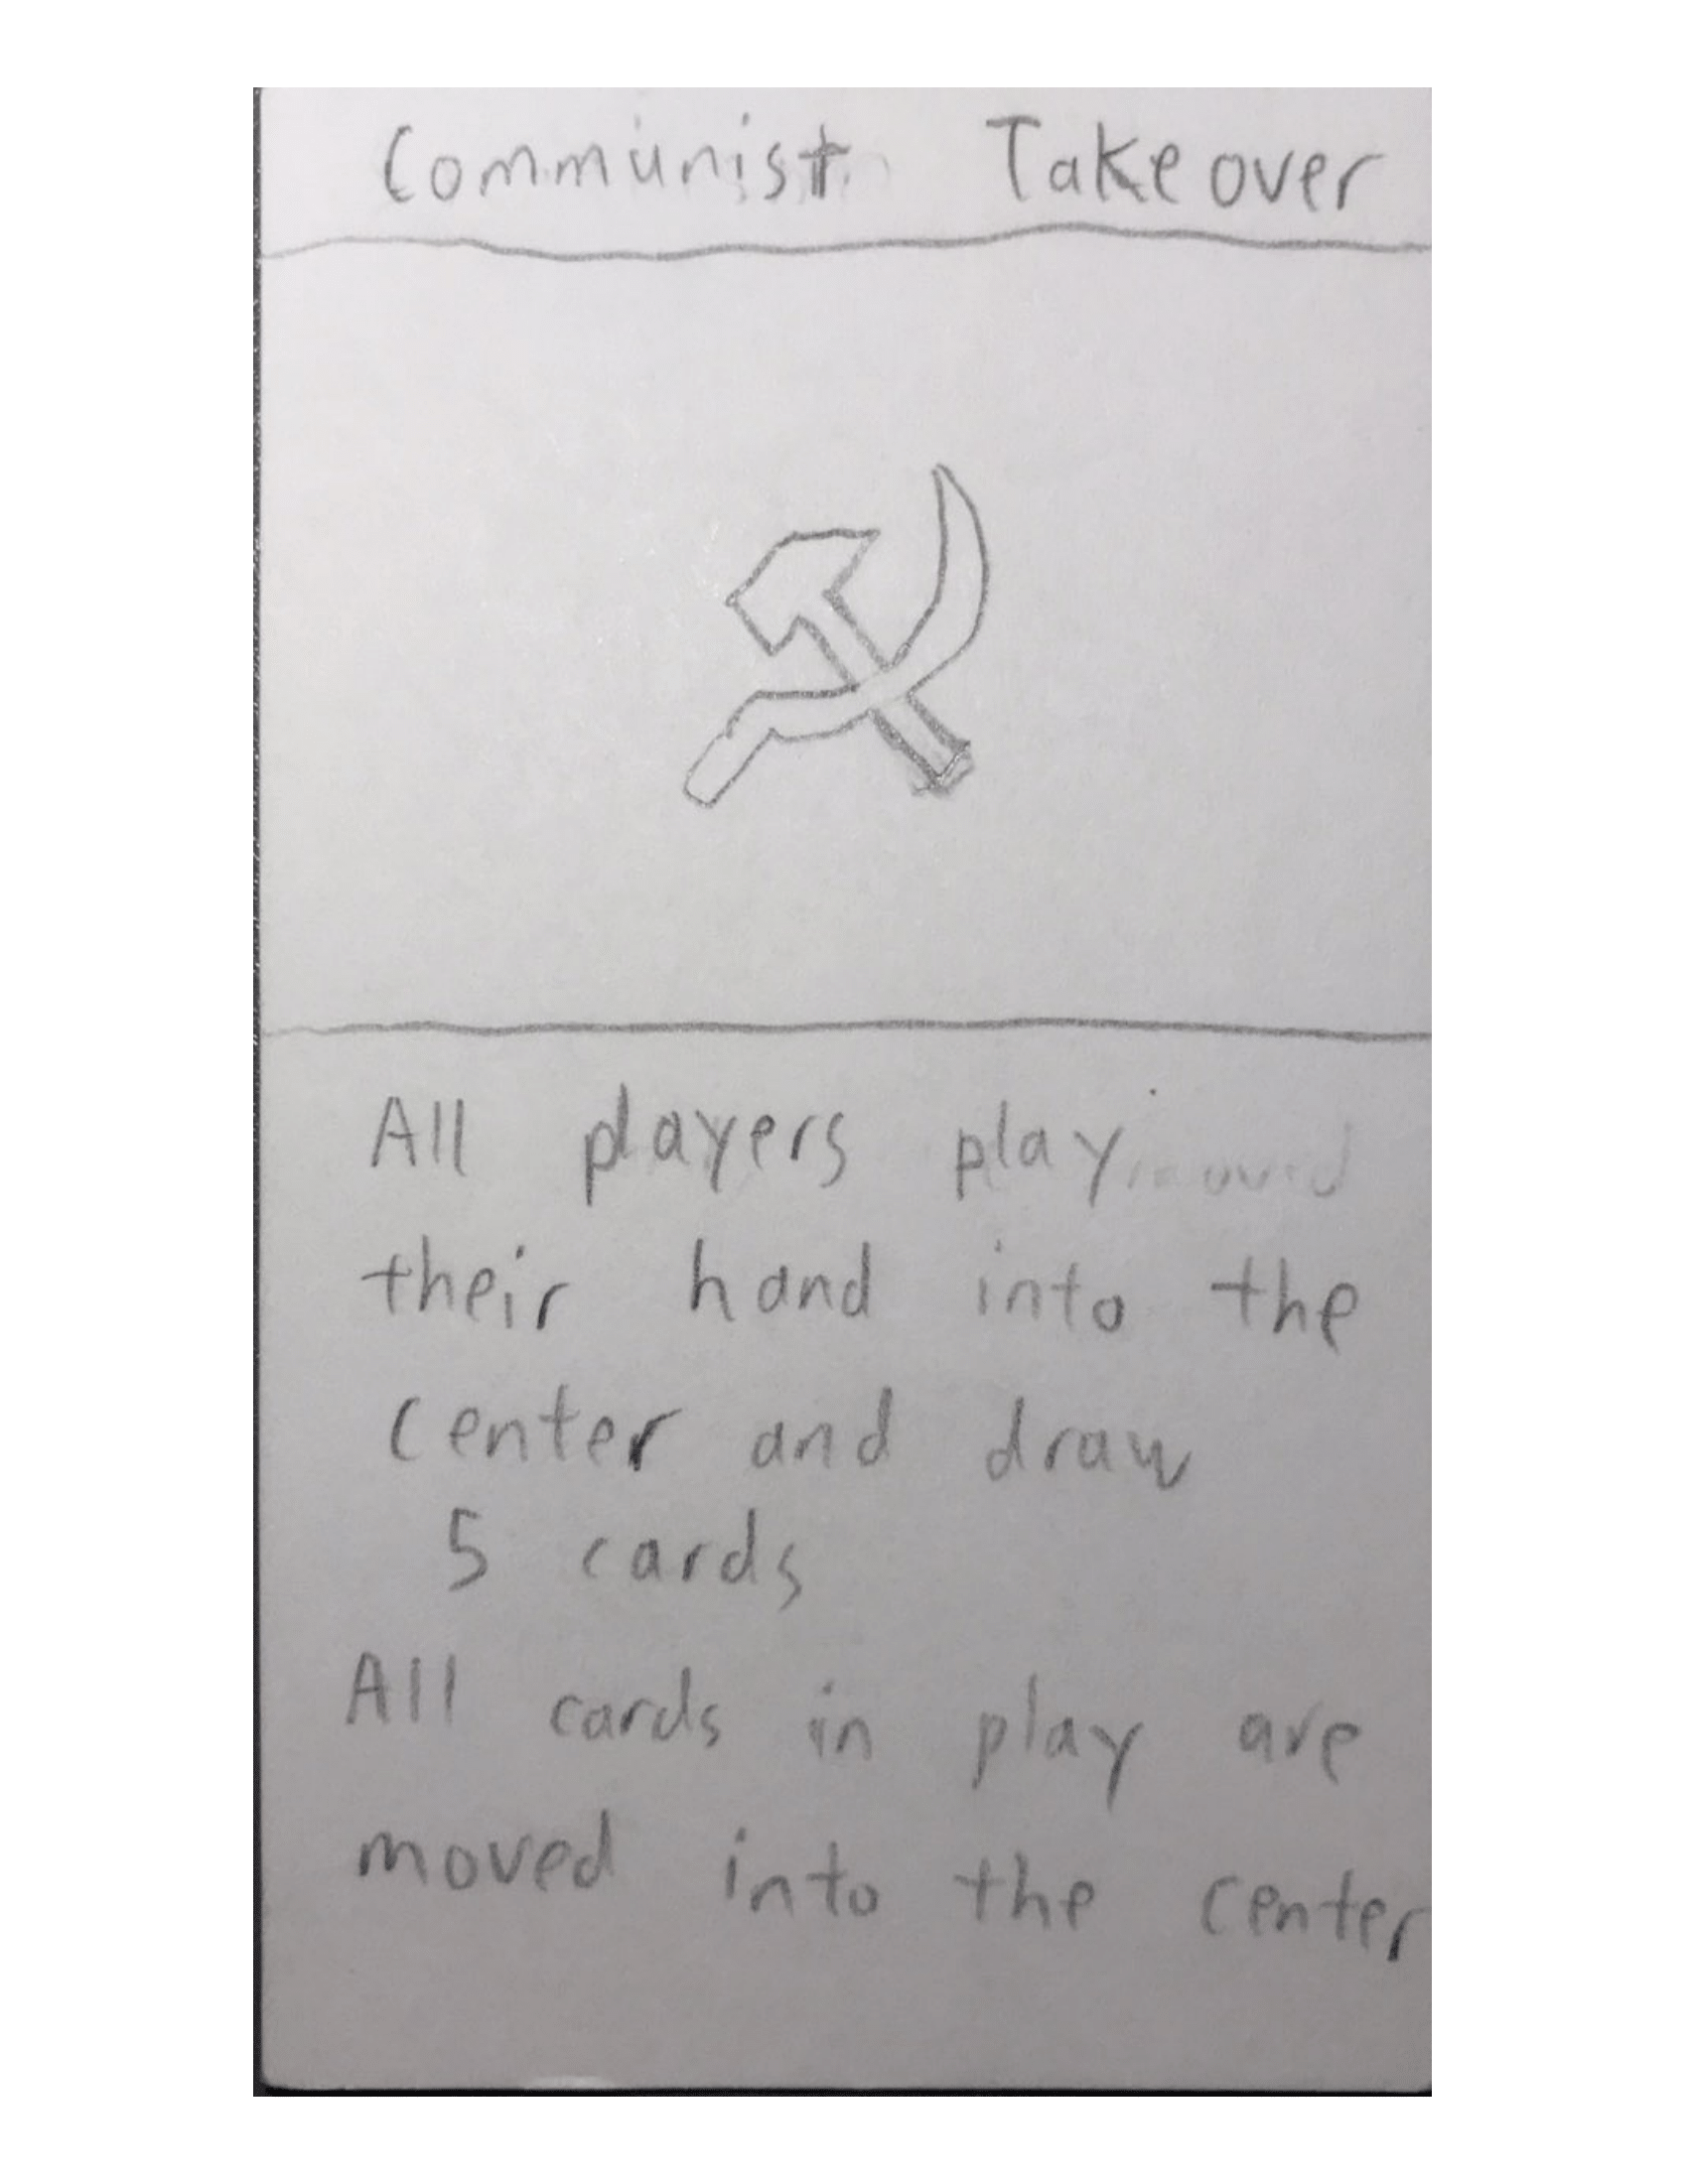 Communist Takeover
All players play
their hand into the
center and draw
5 cards
All cards in play are
moved into the center